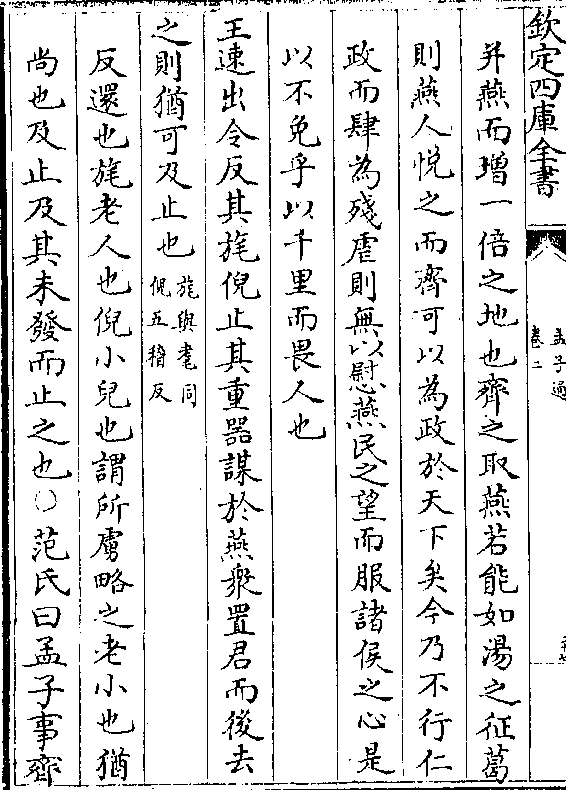 欽定四庫全書
孟子通
卷二
并燕而增一倍之地也齊之取燕若能如湯之征葛
則燕人悅之而齊可以為政於天下矣今乃不行仁
政而肆為殘虐則無以慰燕民之望而服諸侯之心是
以不免乎以千里而畏人也
王速出令反其旄倪止其重器謀於燕衆置君而後去
之則猶可及止也
旄與耄同
倪五稽反
反還也旄老人也倪小兒也謂所虜略之老小也猶
尚也及止及其未發而止之也○范氏曰孟子事齊